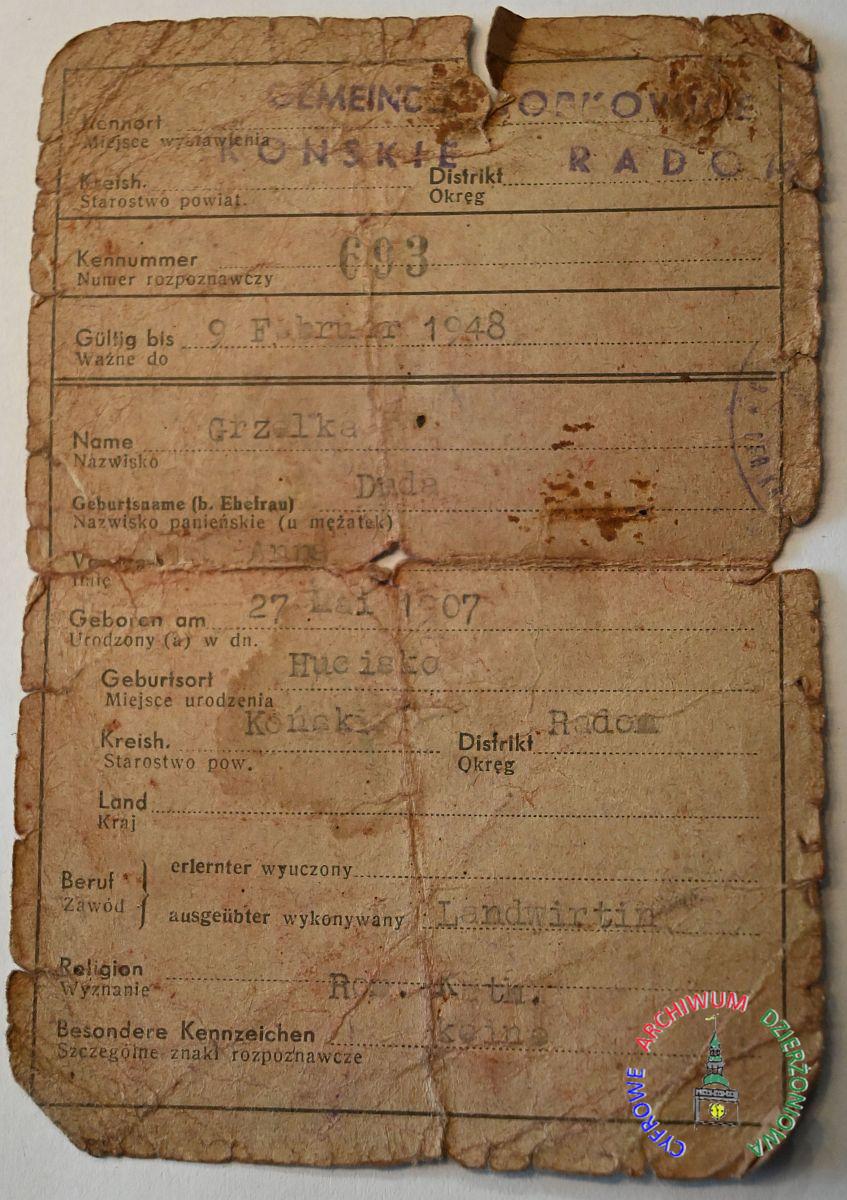 GEMEINDE BORKOWICE
Kennort
Miejsce wystawienia
KONSKIE RADOM
Kreish. Distrikt
Starostwo powiat. Okręg
Kennummer 693
Numer rozpoznawczy
Gültig bis 9 Februar 1948
Ważne do
Name Grzelka
Nazwisko
Geburtsname (b. Ehefrau) Duda
Nazwisko panieńskie (u mężatek)
Anna
Imię
Geboren am 27 Mai 1907
Urodzony (a) w dn.
Geburtsort Hucisko
Miejsce urodzenia
Kreish. Końskie Distrikt Radom
Starostwo pow. Okręg
Land
Kraj
Beruf erlernter wyuczony
Zawód ausgeübter wykonywany Landwirtin
Religion Rom. Kath.
Wyznanie
Besondere Kennzeichen keine
Szczególne znaki rozpoznawcze
CYFROWE ARCHIWUM DZIERŻONIOWA